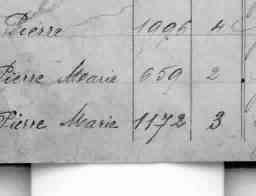 Pierre 1096 4
Pierre Marie 659 2
Pierre Marie 1172 3